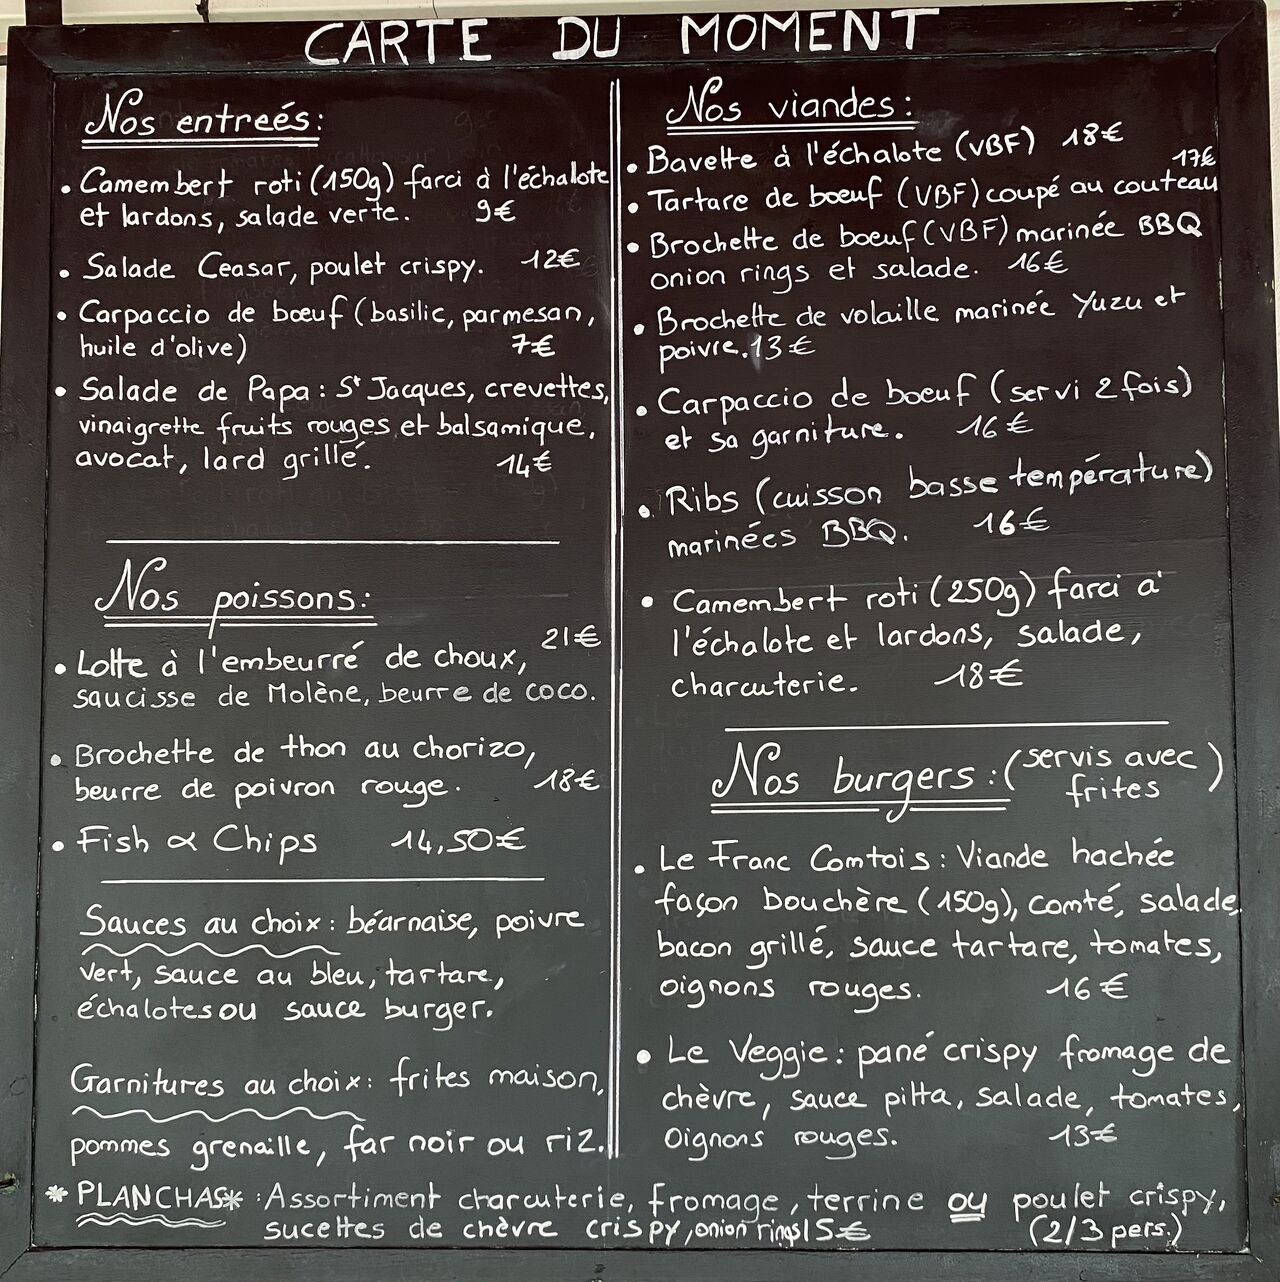 CARTE DU MOMENT
Nos entreés:
• Camembert roti (150g) farci à l'échalote
et lardons, salade verte. 9€
• Salade Ceasar, poulet crispy. 12€
• Carpaccio de bœuf (basilic, parmesan,
huile d'olive) 7€
• Salade de Papa : St Jacques, crevettes,
vinaigrette fruits rouges et balsamique,
avocat, lard grillé. 14€
Nos poissons:
21€
• Lotte à l'embeurré de choux,
saucisse de Molène, beurre de coco.
• Brochette de thon au chorizo,
beurre de poivron rouge. 18€
• Fish & Chips 14,50€
Sauces au choix : béarnaise, poivre
vert, sauce au bleu, tartare,
échalotes ou sauce burger.
Garnitures au choix : frites maison,
pommes grenaille, far noir ou riz.
Nos viandes :
• Bavette à l'échalote (VBF) 18€
17€
• Tartare de bœuf (VBF) coupé au couteau
• Brochette de bœuf (VBF) marinée BBQ
onion rings et salade. 16€
• Brochette de volaille marinée Yuzu et
poivre. 13€
• Carpaccio de bœuf (servi 2 fois)
et sa garniture. 16€
• Ribs (cuisson basse température)
marinées BBQ. 16€
• Camembert roti (250g) farci à
l'échalote et lardons, salade,
charcuterie. 18€
Nos burgers : (servis avec
frites)
• Le Franc Comtois : Viande hachée
façon bouchère (150g), comté, salade,
bacon grillé, sauce tartare, tomates,
oignons rouges. 16€
• Le Veggie : pané crispy fromage de
chèvre, sauce pitta, salade, tomates,
Oignons rouges. 13€
*PLANCHAS* : Assortiment charcuterie, fromage, terrine ou poulet crispy,
sucettes de chèvre crispy, onion rings 15€ (2/3 pers.)